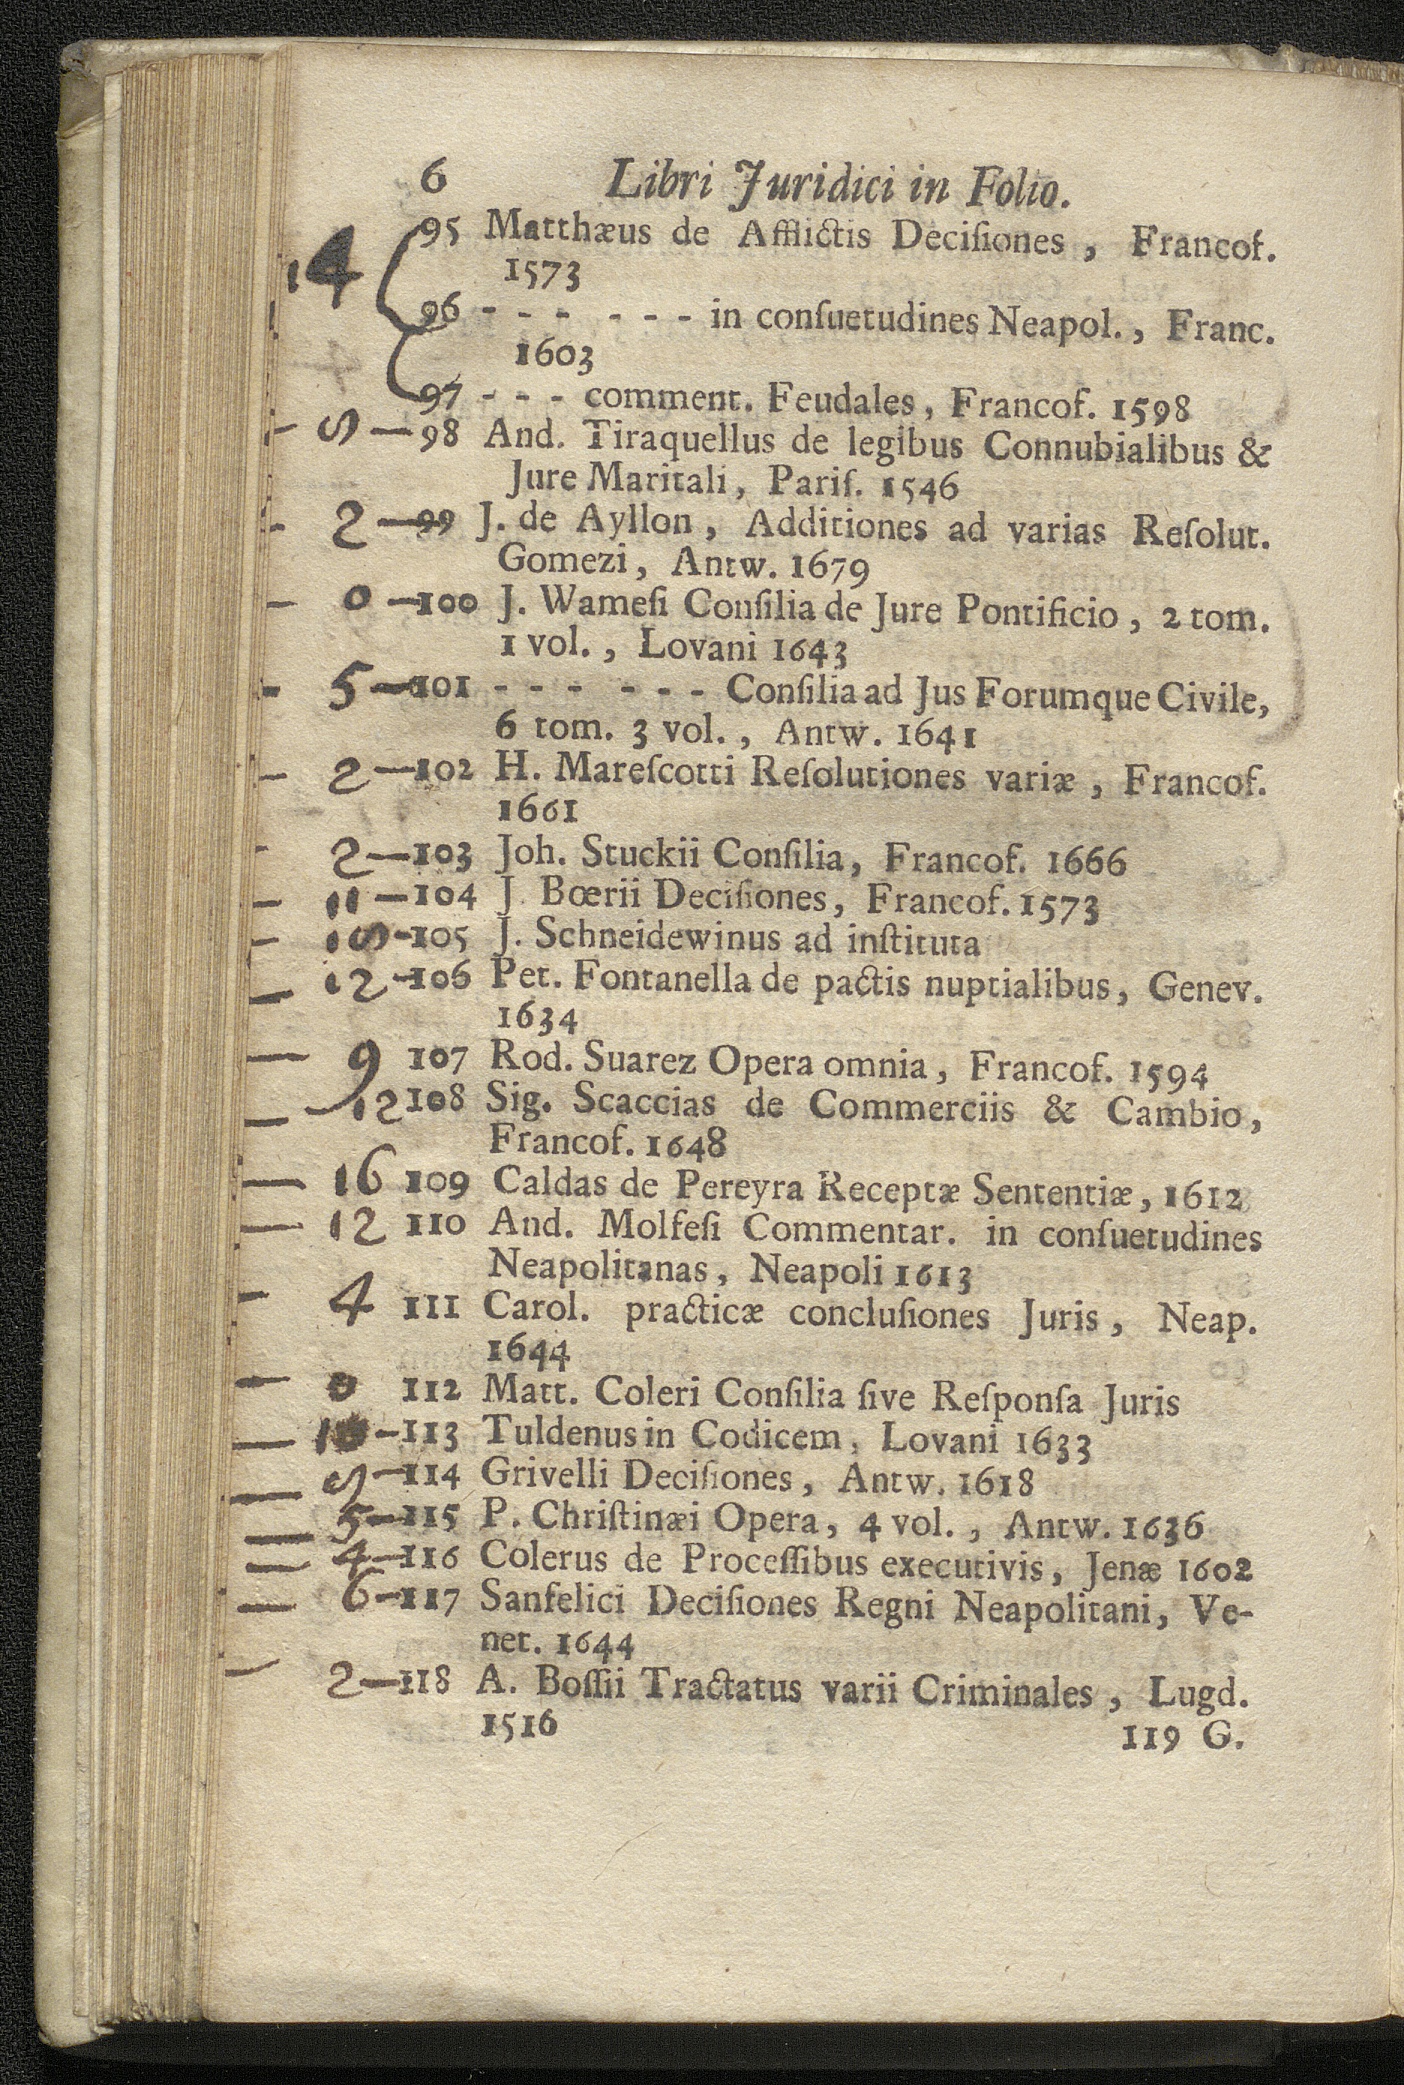 6 Libri Juridici in Folio.
14 95 Matthæus de Afflictis Deciſiones, Francof.
1573
96 - - - - - - in conſuetudines Neapol., Franc.
1603
97 - - - comment. Feudales, Francof. 1598
— 98 And. Tiraquellus de legibus Connubialibus &
Jure Maritali, Pariſ. 1546
2 — 99 J. de Ayllon, Additiones ad varias Reſolut.
Gomezi, Antw. 1679
0 — 100 J. Wameſi Conſilia de Jure Pontificio, 2 tom.
1 vol., Lovani 1643
5 — 101 - - - - - - Conſilia ad Jus Forumque Civile,
6 tom. 3 vol., Antw. 1641
2 — 102 H. Mareſcotti Reſolutiones variæ, Francof.
1661
2 — 103 Joh. Stuckii Conſilia, Francof. 1666
11 — 104 J Bœrii Deciſiones, Francof. 1573
- 105 J. Schneidewinus ad inſtituta
12 - 106 Pet. Fontanella de pactis nuptialibus, Genev.
1634
9 107 Rod. Suarez Opera omnia, Francof. 1594
12 108 Sig. Scaccias de Commerciis & Cambio,
Francof. 1648
16 109 Caldas de Pereyra Receptæ Sententiæ, 1612
12 110 And. Molfeſi Commentar. in conſuetudines
Neapolitanas, Neapoli 1613
4 111 Carol. practicæ concluſiones Juris, Neap.
1644
0 112 Matt. Coleri Conſilia ſive Reſponſa Juris
- 113 Tuldenus in Codicem, Lovani 1633
- 114 Grivelli Deciſiones, Antw. 1618
5 - 115 P. Chriſtinæi Opera, 4 vol., Antw. 1636
4 - 116 Colerus de Proceſſibus executivis, Jenæ 1602
6 - 117 Sanfelici Deciſiones Regni Neapolitani, Ve-
net. 1644
2 — 118 A. Boſſii Tractatus varii Criminales, Lugd.
1516
119 G.